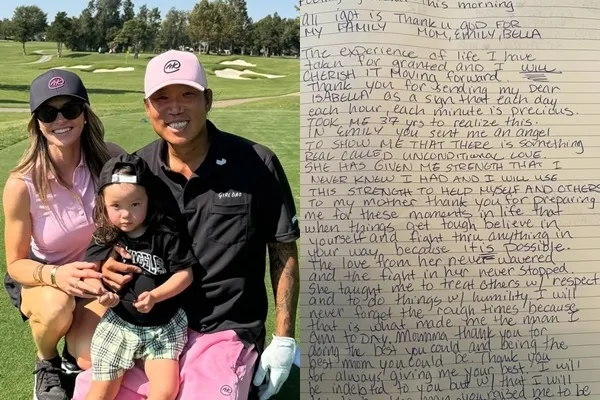 this morning
all I got is Thank u GOD FOR
MY FAMILY MOM, EMILY, BELLA
The experience of life I have
taken for granted and I will
CHERISH IT Moving forward.
Thank you for sending my Dear
ISABELLA as a sign that each day
each hour, each minute is precious.
TOOK ME 37 yrs to realize this.
In EMILY you sent me an angel
TO SHOW ME THAT THERE IS something
REAL CALLED UNCONDITIONAL LOVE.
SHE HAS GIVEN ME STRENGTH THAT I
NEVER KNEW I HAD AND I WILL USE
THIS STRENGTH TO HELP MYSELF AND OTHERS
To my mother thank you for preparing
me for these moments in life that
when things get tough believe in
yourself and fight thru anything in
your way, because it is possible.
The love from her never wavered
and the fight in her never stopped.
she taught me to treat others w/ respect
and to do things w/ humility. I will
never forget the rough times because
that is what made me the man I
am to day. Momma thank you for
doing the best you could and being the
best mom you could be. Thank you
for always giving me your best. I will
be indebted to you but w/ that I will
you raised me to be